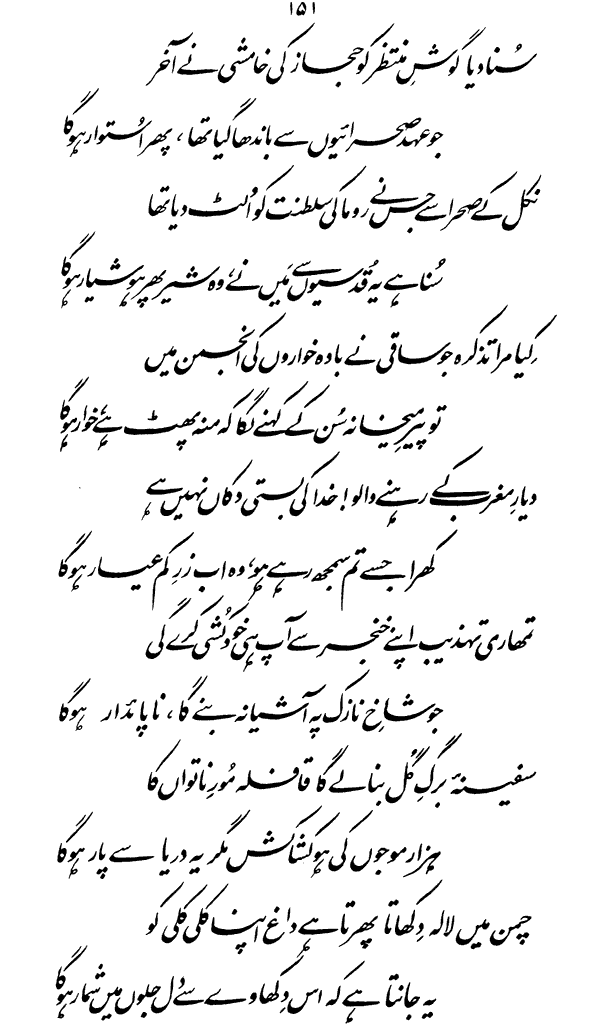 ۱۵۱
سُنا دیا گوشِ منتظر کو حجاز کی خامشی نے آخر
جو عہد صحرائیوں سے باندھا گیا تھا، پھر اُستوار ہوگا
نکل کے صحرا سے جس نے روما کی سلطنت کو اُلٹ دیا تھا
سُنا ہے یہ قُدسیوں سے مَیں نے، وہ شیر پھر ہوشیار ہوگا
کِیا مرا تذکرہ جو ساقی نے بادہ خواروں کی انجمن میں
تو پیرِ میخانہ سُن کے کہنے لگا کہ منہ پھٹ ہے، خوار ہوگا
دیارِ مغرب کے رہنے والو! خدا کی بستی دکاں نہیں ہے
کھرا جسے تم سمجھ رہے ہو، وہ اب زرِ کم عیار ہوگا
تمھاری تہذیب اپنے خنجر سے آپ ہی خودکُشی کرے گی
جو شاخِ نازک پہ آشیانہ بنے گا، ناپائدار ہوگا
سفینۂ برگِ گُل بنا لے گا قافلہ مُورِ ناتواں کا
ہزار موجوں کی ہو کشاکش مگر یہ دریا سے پار ہوگا
چمن میں لالہ دِکھاتا پھرتا ہے داغ اپنا کلی کلی کو
یہ جانتا ہے کہ اس دِکھاوے سے دل جلوں میں شمار ہوگا